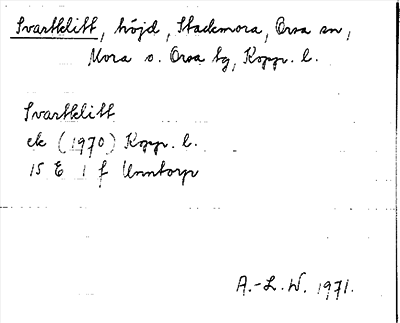 Svartklitt, höjd, Stackmora, Orsa sn,
Mora o. Orsa tg, Kopp. l.
Svartklitt
ek (1970) Kopp. l.
15 E 1 f Unntorp
A.-L. W. 1971.